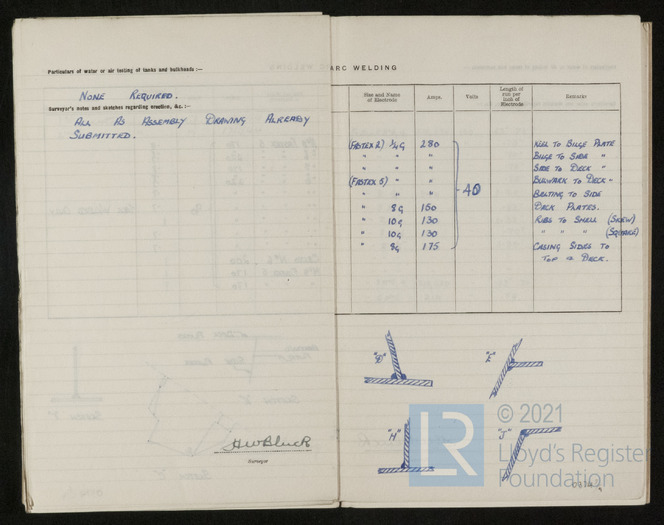 Particulars of water or air testing of tanks and bulkheads :—
NONE REQUIRED.
Surveyor's notes and sketches regarding erection, &c. :—
ALL AS ASSEMBLY DRAWING ALREADY
SUBMITTED.
H W Bluck
Surveyor
ARC WELDING
Size and Name of Electrode Amps. Volts Length of run per inch of Electrode Remarks
(FASTEX 2) 1/4 G 280 KEEL TO BILGE PLATE
" " " BILGE TO SIDE "
" " " SIDE TO DECK "
(FASTEX 5) " " 40 BULWARK TO DECK "
" " " BELTING TO SIDE
" 8G 160 DECK PLATES.
" 10G 130 RIBS TO SHELL (SKEW)
" 10G 130 " " " (SQUARE)
" 8G 175 CASING SIDES TO
TOP & DECK.
"D" "E"
"H" "J"
LR
© 2021
Lloyd's Register
Foundation